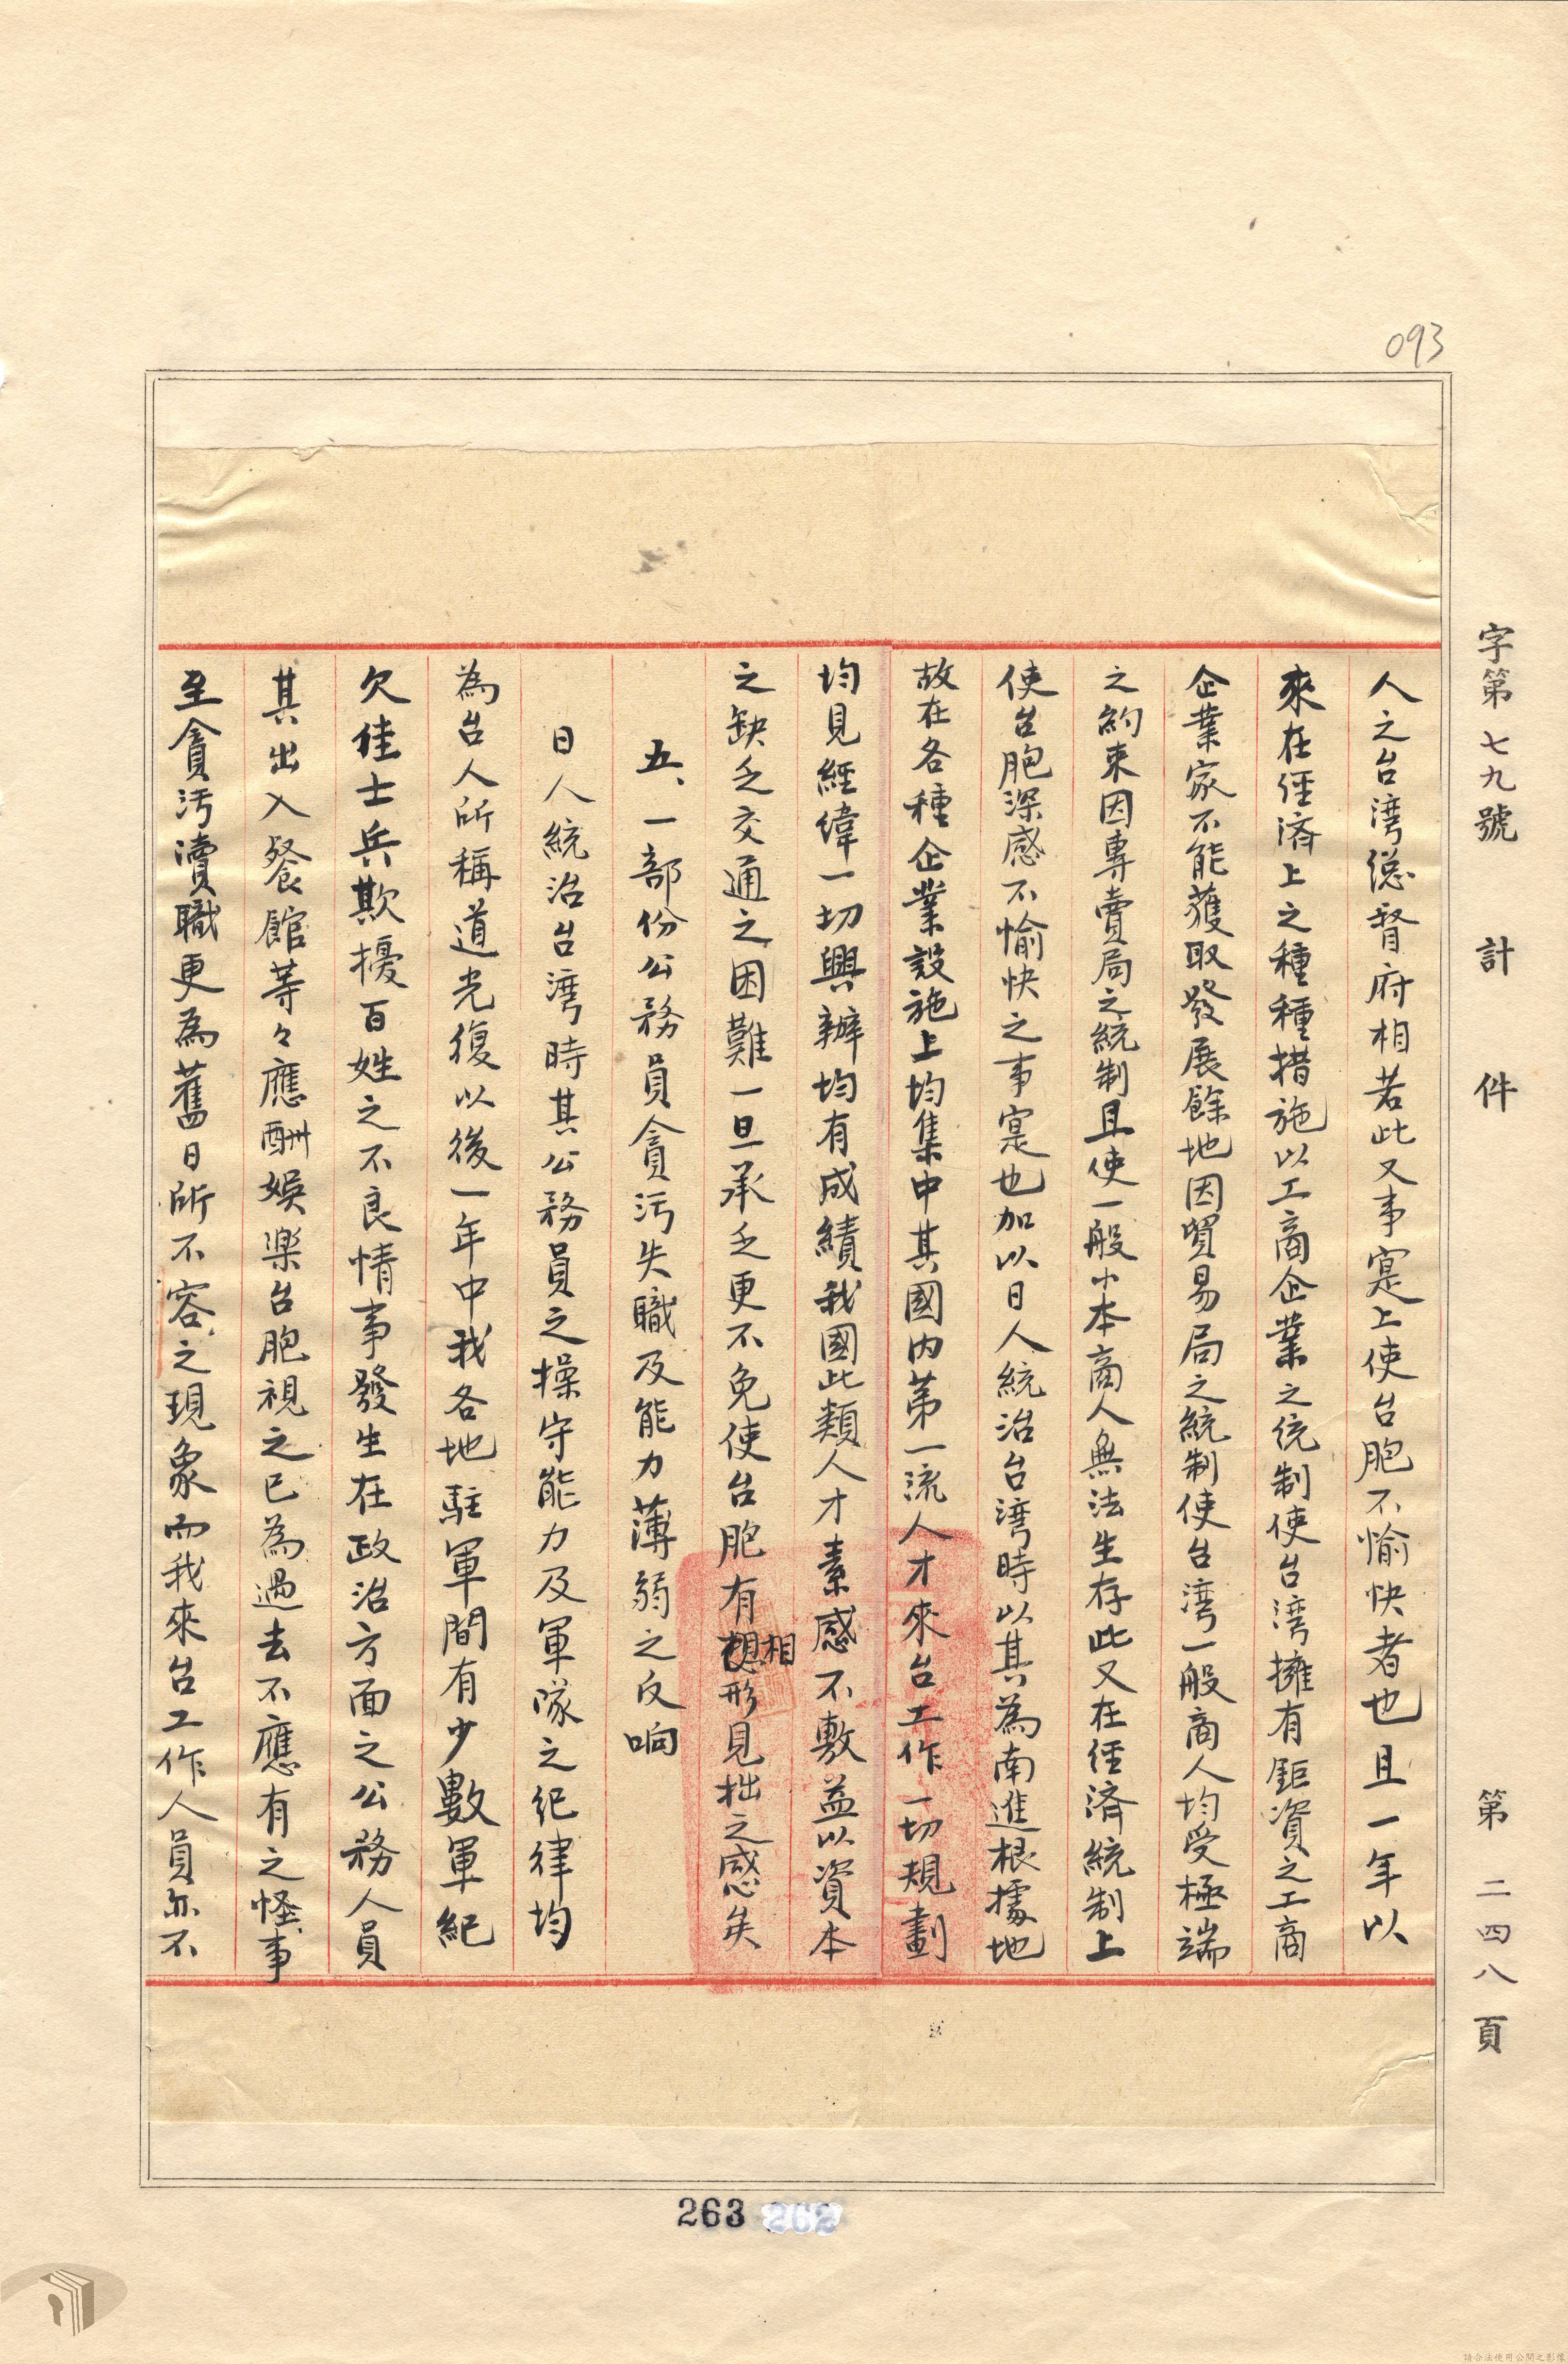 093
字第七九號 計 件 第二四八頁
人之台湾總督府相若此又事寔上使台胞不愉快者也且一年以
來在経済上之種種措施以工商企業之统制使台湾擁有鉅資之工商
企業家不能獲取發展餘地因貿易局之統制使台湾一般商人均受極端
之約束因專賣局之統制且使一般小本商人無法生存此又在経済統制上
使台胞深感不愉快之事寔也加以日人統治台湾時以其為南進根據地
故在各種企業設施上均集中其國内第一流人才來台工作一切規劃
均見經緯一切興辦均有成績我國此類人才素感不敷益以資本
之缺乏交通之困難一旦承乏更不免使台胞有相形見拙之感矣
五、一部份公務員貪污失職及能力薄弱之反响
日人統治台湾時其公務員之操守能力及軍隊之纪律均
為台人所稱道光復以後一年中我各地駐軍間有少數軍紀
欠佳士兵欺擾百姓之不良情事發生在政治方面之公務人員
其出入餐館等々應酬娛楽台胞視之已為過去不應有之怪事
至貪污瀆職更為舊日所不容之現象而我來台工作人員亦不
263 262
請合法使用公開之影像